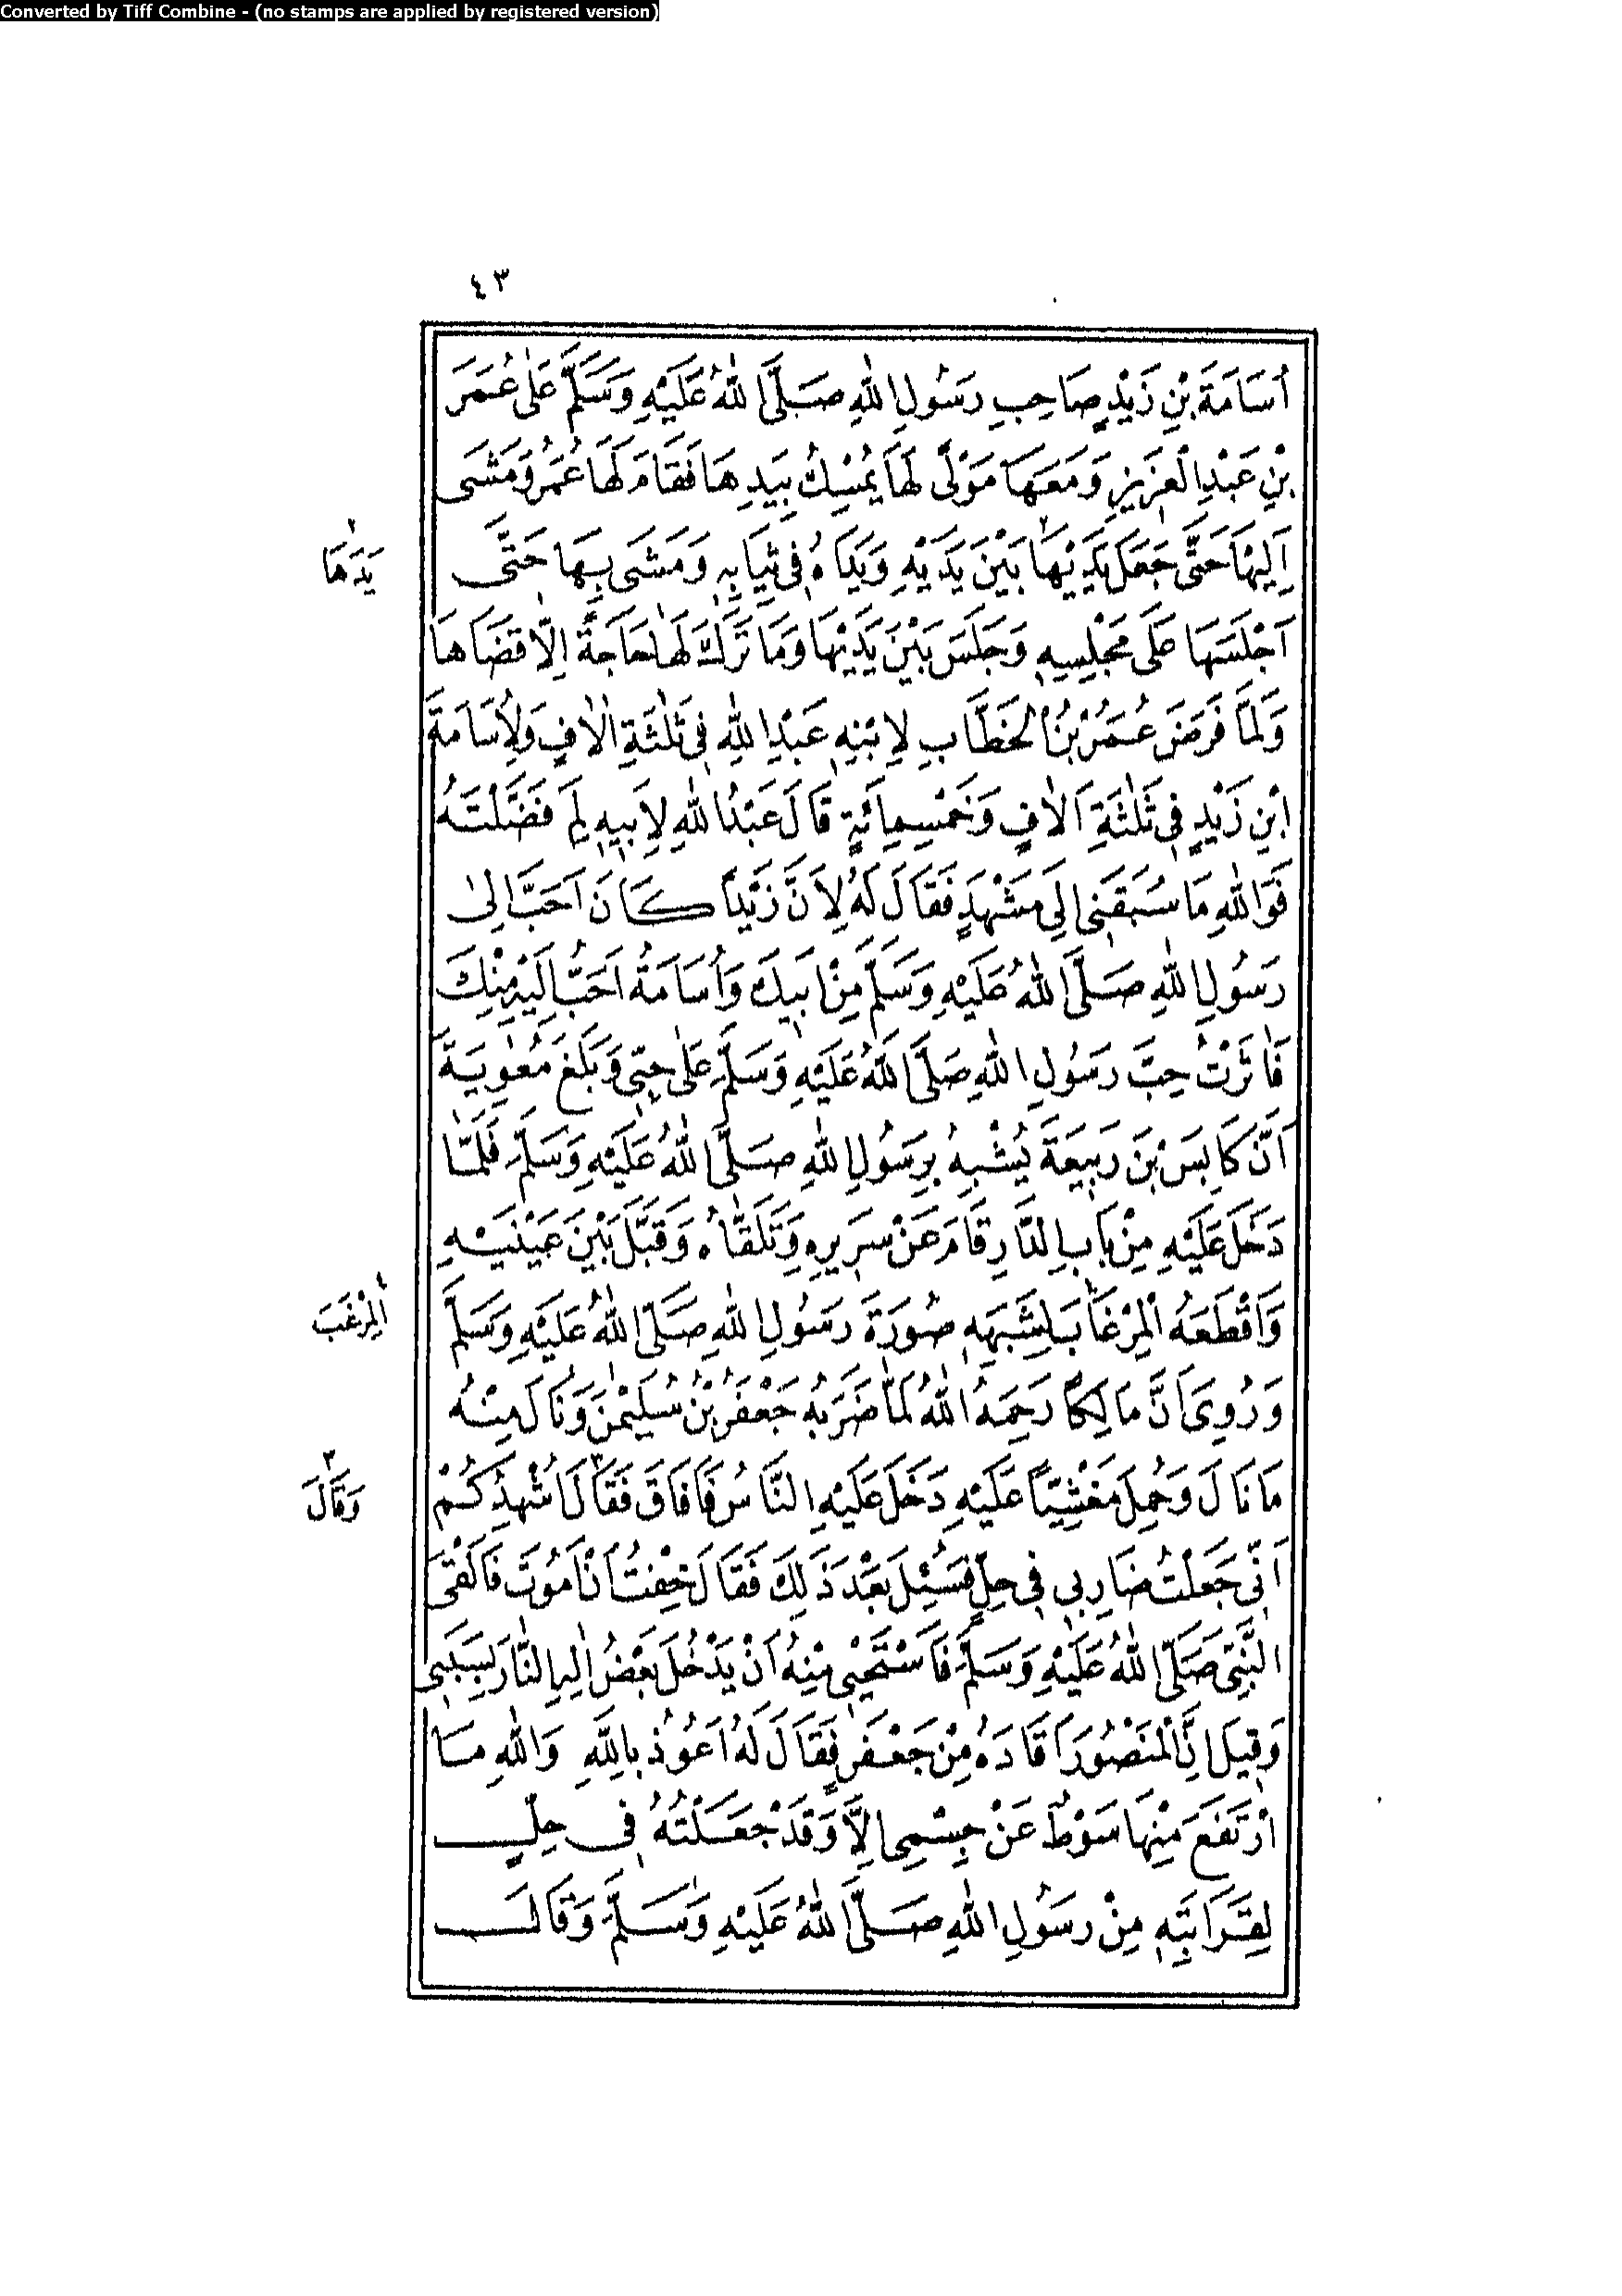 Converted by Tiff Combine - (no stamps are applied by registered version)
٤٣
اُسَامَةَ بْنِ زَيْدٍ صَاحِبِ رَسُولِ اللّٰهِ صَلَّى اللّٰهُ عَلَيْهِ وَسَلَّمَ عَلٰى عُمَرَ
بْنِ عَبْدِ الْعَزِيزِ وَمَعَهَا مَوْلًى لَهَا يُمْسِكُ بِيَدِهَا فَقَامَ لَهَا عُمَرُ وَمَشَى
اِلَيْهَا حَتّٰى جَعَلَ يَدَيْهَا بَيْنَ يَدَيْهِ وَيَدَاهُ فِى ثِيَابِهِ وَمَشَى بِهَا حَتّٰى
يَدَهَا
اَجْلَسَهَا عَلَى مَجْلِسِهِ وَجَلَسَ بَيْنَ يَدَيْهَا وَمَا تَرَكَ لَهَا حَاجَةً اِلَّا قَضَاهَا
وَلَمَّا فَرَضَ عُمَرُ بْنُ الْخَطَّابِ لِابْنِهِ عَبْدِ اللّٰهِ فِى ثَلٰثَةِ اٰلَافٍ وَلِاُسَامَةَ
ابْنِ زَيْدٍ فِى ثَلٰثَةِ اٰلَافٍ وَخَمْسِمِائَةٍ قَالَ عَبْدُ اللّٰهِ لِاَبِيهِ لِمَ فَضَّلْتَهُ
فَوَاللّٰهِ مَا سَبَقَنِى اِلَى مَشْهَدٍ فَقَالَ لَهُ لِاَنَّ زَيْدًا كَانَ اَحَبَّ اِلٰى
رَسُولِ اللّٰهِ صَلَّى اللّٰهُ عَلَيْهِ وَسَلَّمَ مِنْ اَبِيكَ وَاُسَامَةُ اَحَبُّ اِلَيْهِ مِنْكَ
فَاٰثَرْتُ حِبَّ رَسُولِ اللّٰهِ صَلَّى اللّٰهُ عَلَيْهِ وَسَلَّمَ عَلٰى حِبِّى وَبَلَغَ مُعٰوِيَةَ
اَنَّ كَابِسَ بْنَ رَبِيعَةَ يُشْبِهُ بِرَسُولِ اللّٰهِ صَلَّى اللّٰهُ عَلَيْهِ وَسَلَّمَ فَلَمَّا
دَخَلَ عَلَيْهِ مِنْ بَابِ الدَّارِ قَامَ عَنْ سَرِيرِهِ وَتَلَقَّاهُ وَقَبَّلَ بَيْنَ عَيْنَيْهِ
وَاَقْطَعَهُ الْمِرْغَابَ لِشَبَهِهِ صُورَةَ رَسُولِ اللّٰهِ صَلَّى اللّٰهُ عَلَيْهِ وَسَلَّمَ
الْمِرْغَبَ
وَرُوِىَ اَنَّ مَالِكًا رَحِمَهُ اللّٰهُ لَمَّا ضَرَبَهُ جَعْفَرُ بْنُ سُلَيْمٰنَ وَنَالَ مِنْهُ
مَا نَالَ وَحُمِلَ مَغْشِيًّا عَلَيْهِ دَخَلَ عَلَيْهِ النَّاسُ فَاَفَاقَ فَقَالَ اُشْهِدُكُمْ
وَقَالَ
اَنِّى جَعَلْتُ ضَارِبِى فِى حِلٍّ فَسُئِلَ بَعْدَ ذٰلِكَ فَقَالَ خِفْتُ اَنْ اَمُوتَ فَاَلْقَى
النَّبِىَّ صَلَّى اللّٰهُ عَلَيْهِ وَسَلَّمَ فَاَسْتَحْيِى مِنْهُ اَنْ يَدْخُلَ بَعْضُ اٰلِهِ النَّارَ بِسَبَبِى
وَقِيلَ اِنَّ الْمَنْصُورَ اَقَادَهُ مِنْ جَعْفَرٍ فَقَالَ لَهُ اَعُوذُ بِاللّٰهِ وَاللّٰهِ مَا
ارْتَفَعَ مِنْهَا سَوْطٌ عَنْ جِسْمِى اِلَّا وَقَدْ جَعَلْتُهُ فِى حِلٍّ
لِقَرَابَتِهِ مِنْ رَسُولِ اللّٰهِ صَلَّى اللّٰهُ عَلَيْهِ وَسَلَّمَ وَقَالَ